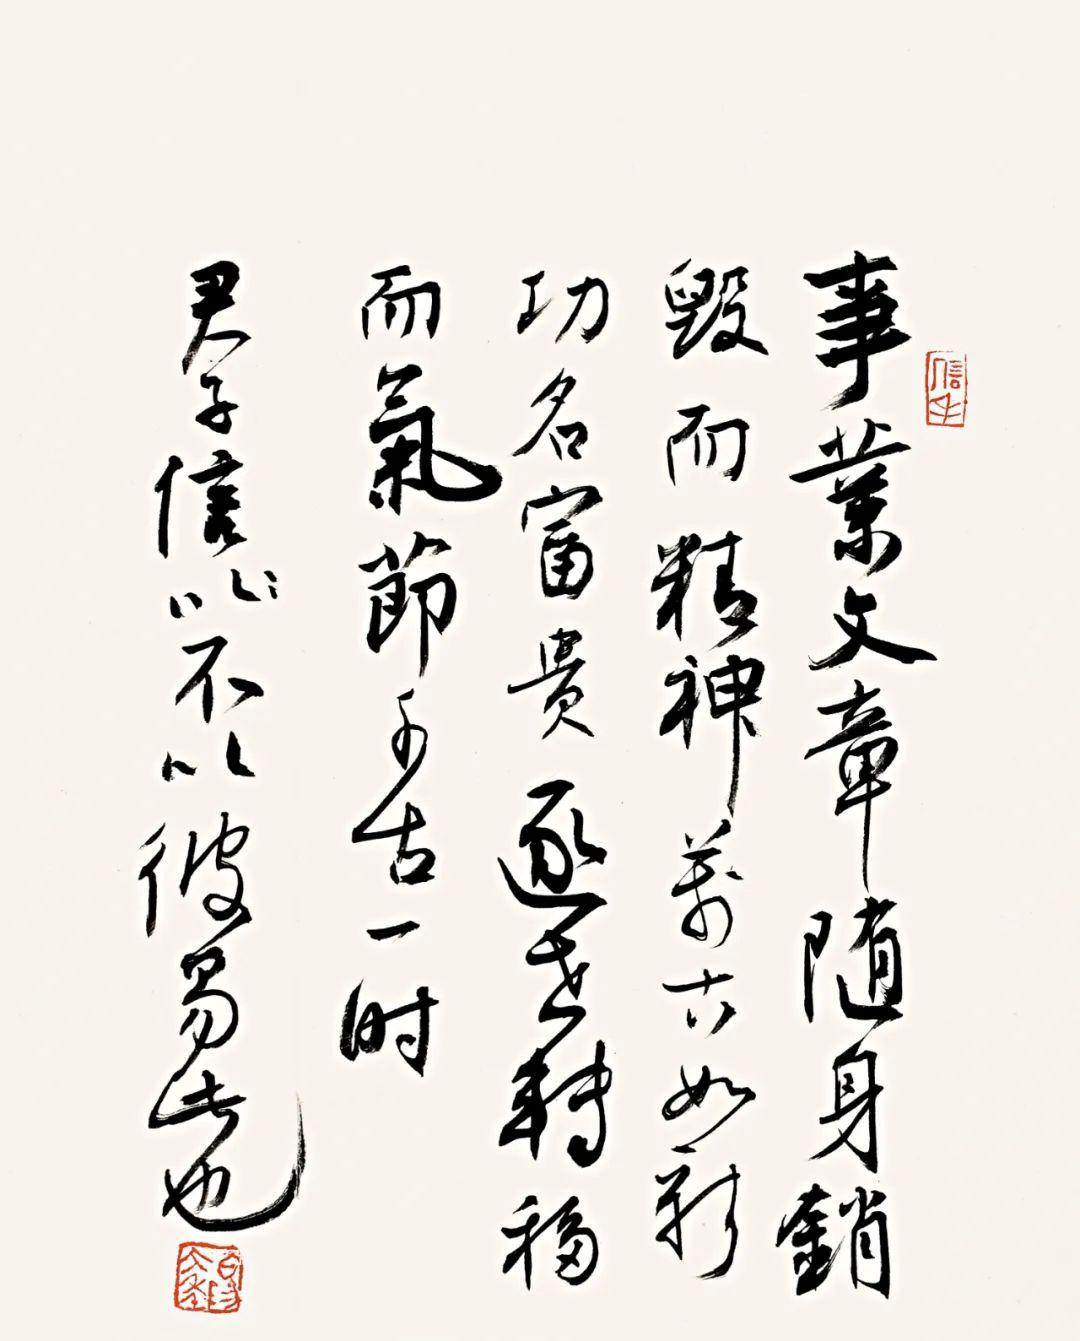 事業文章随身銷
毀而精神萬古如新
功名富貴逐世轉移
而氣節千古一時
君子信不以彼易此也